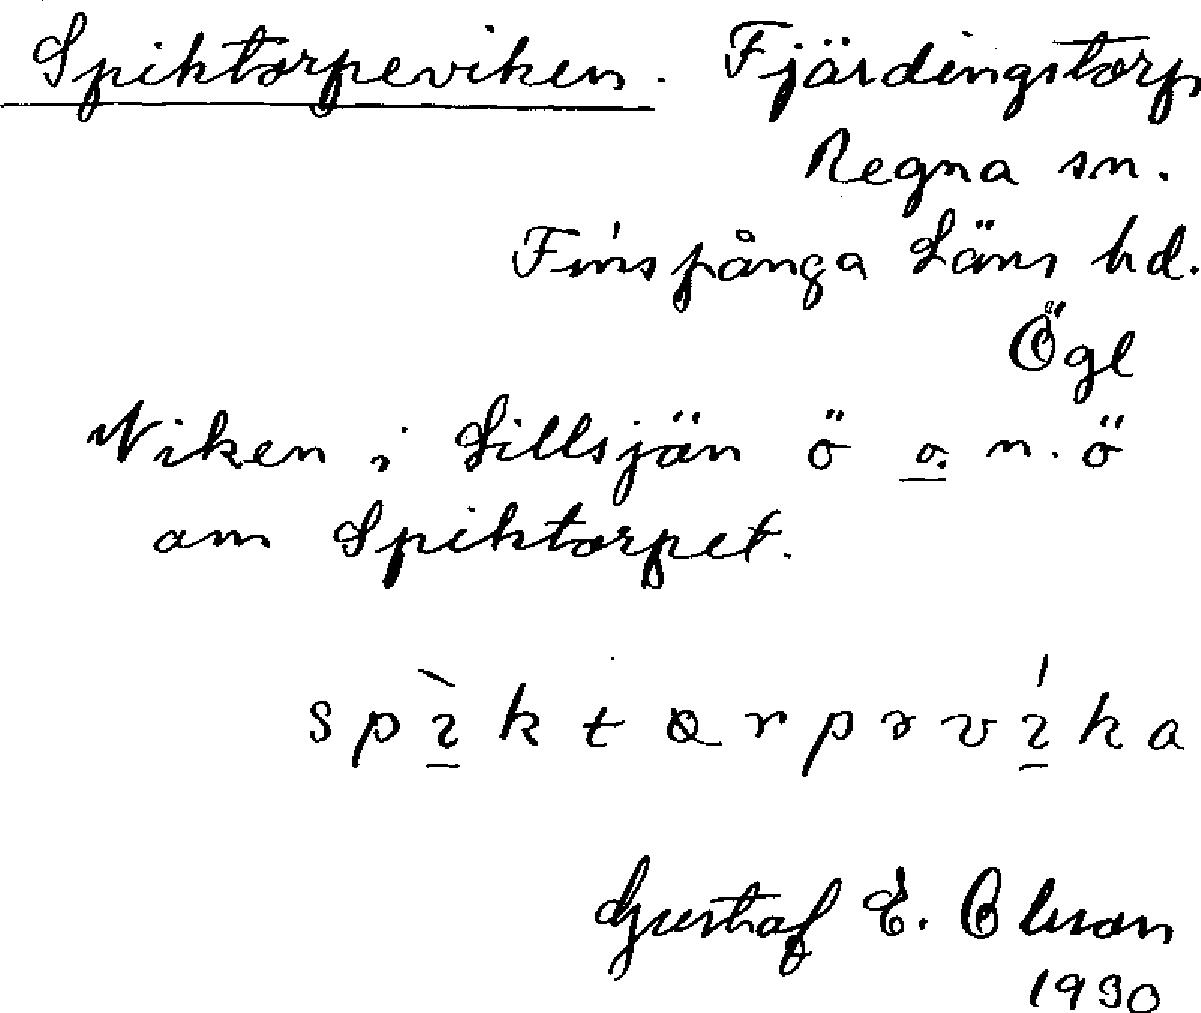 Spiktorpeviken. Fjärdingstorp
Regna sn.
Finspånga Läns hd.
Ögl
Viken i Lillsjön ö o. n.ö
om Spiktorpet.
spìktɑrpəvíka
Gustaf E. Olsson
1930